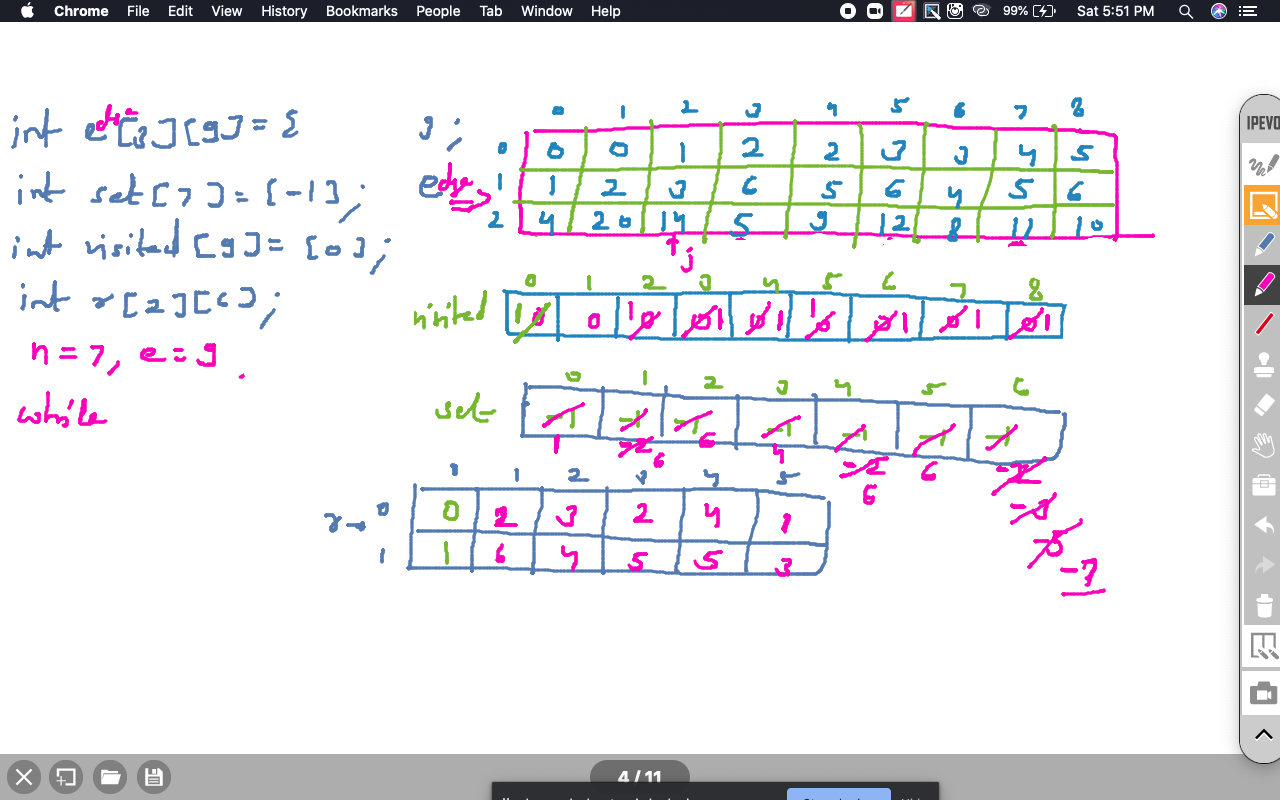 Chrome File Edit View History Bookmarks People Tab Window Help 99% Sat 5:51 PM
IPEVO
int edge[3][9] = { };
int set[7] = {-1};
int visited[9] = {0};
int r[2][6];
n = 7, e = 9
while
0 1 2 3 4 5 6 7 8
0 0 0 1 2 2 3 3 4 5
edge 1 1 2 3 6 5 6 4 5 6
2 4 20 14 5 9 12 8 11 10
j
0 1 2 3 4 5 6 7 8
visited 1 0 0 1 0 0 1 0 1 1 0 0 1 0 1 0 1
0 1 2 3 4 5 6
set -1 -1 -1 -1 -1 -1 -1
1 -2 6 6 4 -2 6 -2
6 6 -3
-5
-7
0 1 2 3 4 5
r → 0 0 2 3 2 4 1
1 1 6 4 5 5 3
4 / 11